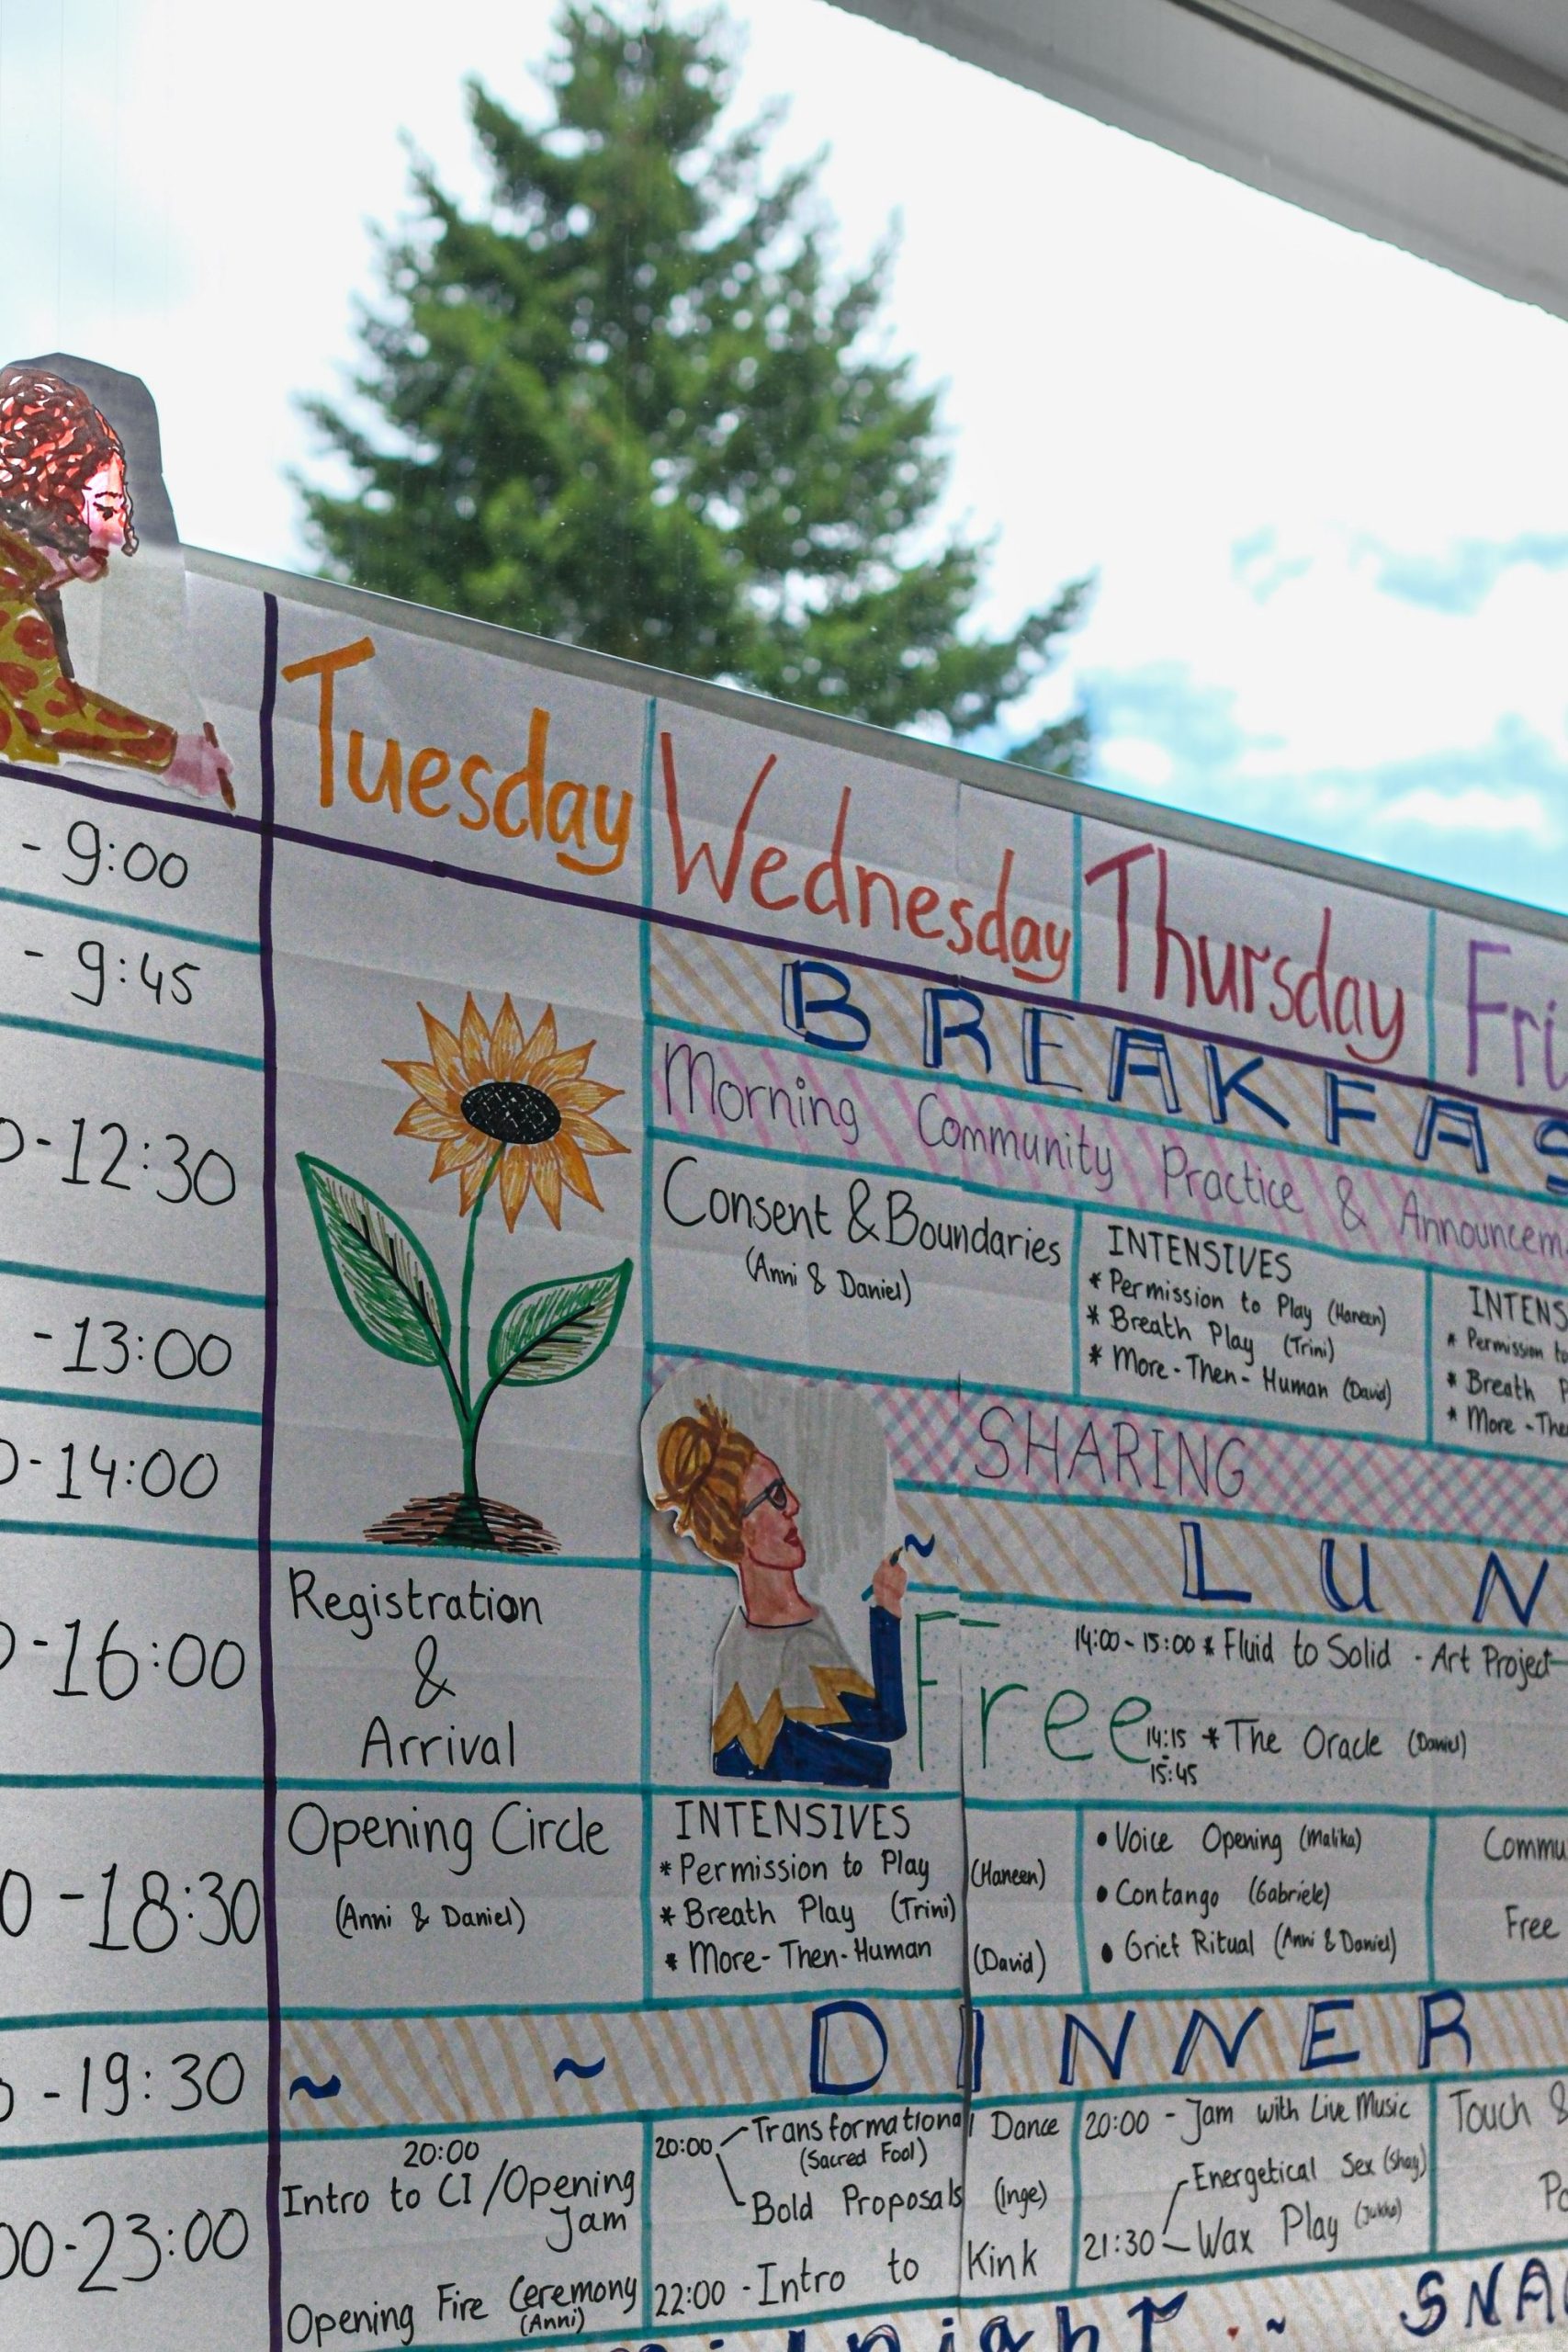 Tuesday
Wednesday
Thursday
Fri
- 9:00
BREAKFAS
- 9:45
Morning Community Practice & Announcem
-12:30
Consent & Boundaries
(Anni & Daniel)
INTENSIVES
* Permission to Play (Haneen)
* Breath Play (Trini)
* More-Then-Human (David)
INTENS
* Permission to
* Breath P
* More-The
-13:00
SHARING
-14:00
~ LUN
-16:00
Registration
&
Arrival
Free
14:00-15:00 * Fluid to Solid - Art Project
14:15 * The Oracle (Daniel)
15:45
-18:30
Opening Circle
(Anni & Daniel)
INTENSIVES
* Permission to Play (Haneen)
* Breath Play (Trini)
* More-Then-Human (David)
• Voice Opening (Malika)
• Contango (Gabriele)
• Grief Ritual (Anni & Daniel)
Commu
Free
-19:30
~ ~ DINNER
0-23:00
20:00
Intro to CI/Opening
Jam
Opening Fire Ceremony
(Anni)
20:00 Transformational Dance
(Sacred Fool)
Bold Proposals (Inge)
22:00 - Intro to Kink
20:00 - Jam with Live Music
Energetical Sex (Shay)
21:30 Wax Play (Jukka)
Touch &
Po
SNA